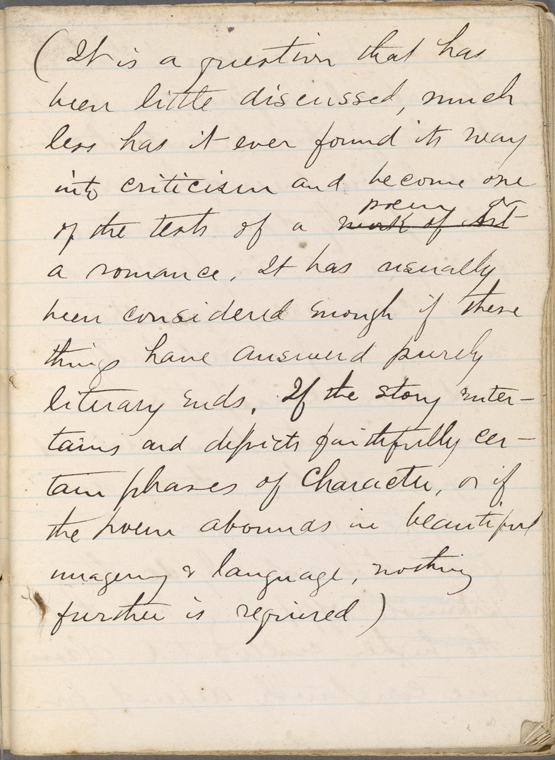 (It is a question that has
been little discussed, much
less has it ever found its way
into criticism and become one
of the tests of a work of Art poem or
a romance. It has usually
been considered enough if these
things have answered purely
literary ends. If the story enter-
tains and depicts faithfully cer-
tain phases of Character, or if
the poem abounds in beautiful
imagery & language, nothing
further is required)